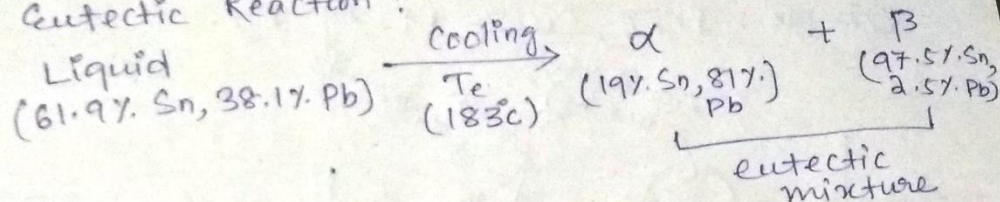 Eutectic Reaction:
Liquid
(61.9%. Sn, 38.1%. Pb)
Cooling
Te
(183°C)
α
(19%. Sn, 81%.)
Pb
+
β
(97.5%. Sn,
2.5%. Pb)
eutectic
mixture